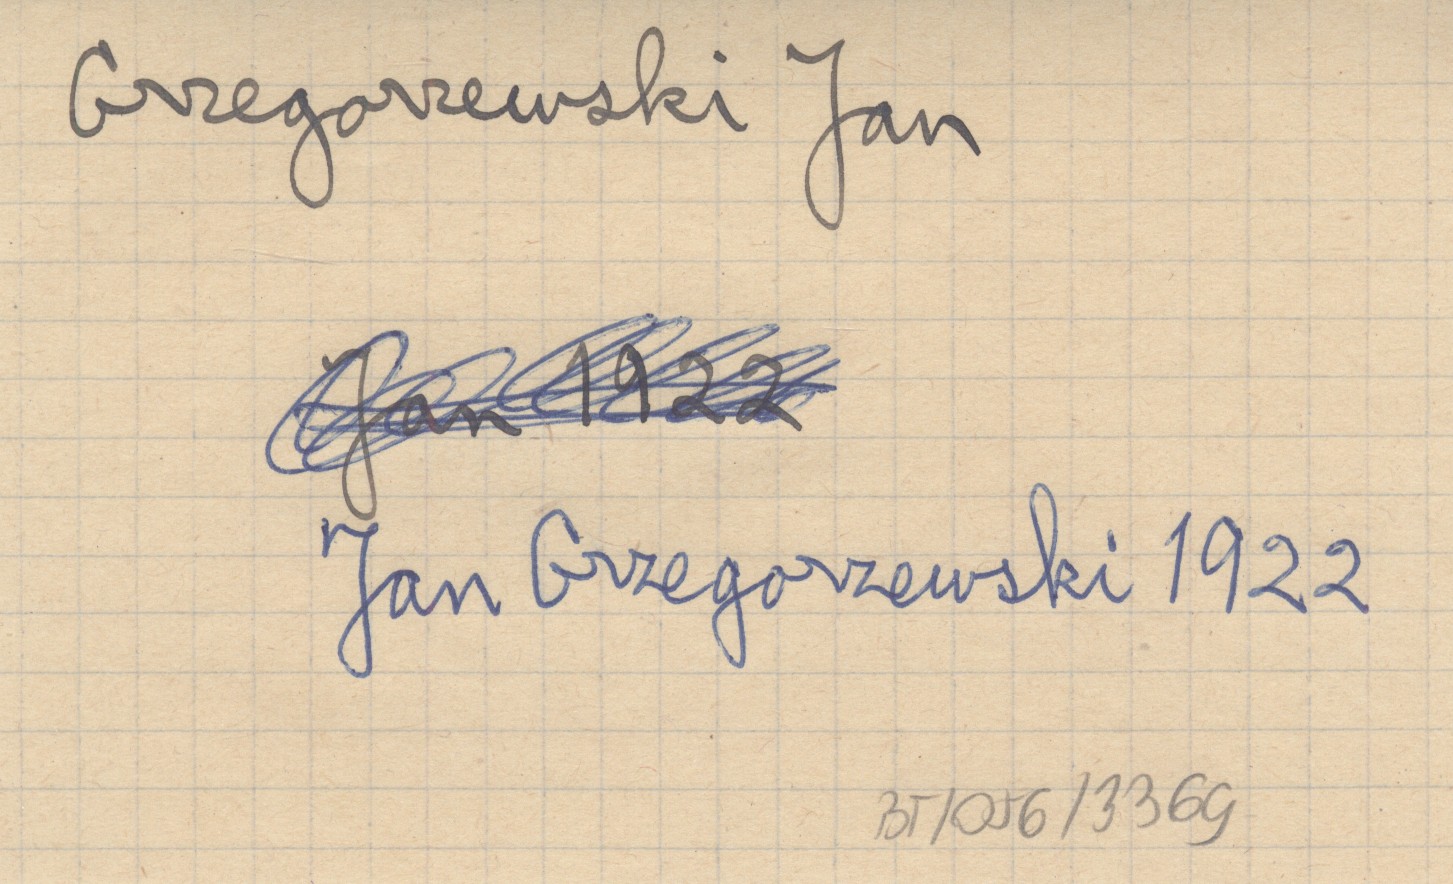 Grzegorzewski Jan
Jan 1922
Jan Grzegorzewski 1922
BT/056/336g